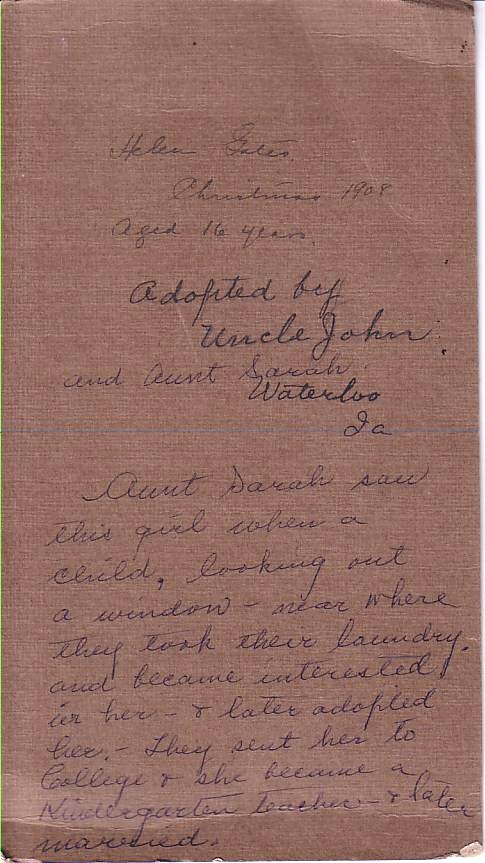 Helen
Christmas 1908
Aged 16 years.
Adopted by
Uncle John
and Aunt Sarah
Waterloo
Ia
Aunt Sarah saw
this girl when a
child, looking out
a window - near where
they took their laundry,
and became interested
in her - & later adopted
her. - They sent her to
College & she became a
Kindergarten teacher - & later
married.